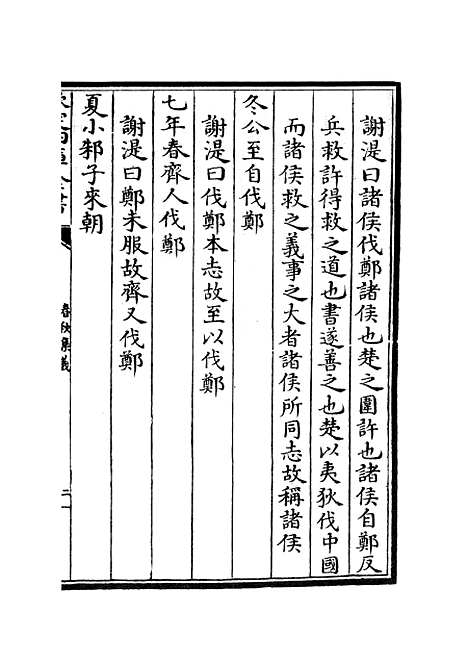 謝湜曰諸侯伐鄭諸侯也楚之圍許也諸侯自鄭反
兵救許得救之道也書遂善之也楚以夷狄伐中國
而諸侯救之義事之大者諸侯所同志故稱諸侯
冬公至自伐鄭
謝湜曰伐鄭本志故至以伐鄭
七年春齊人伐鄭
謝湜曰鄭未服故齊又伐鄭
夏小邾子來朝
春秋集義